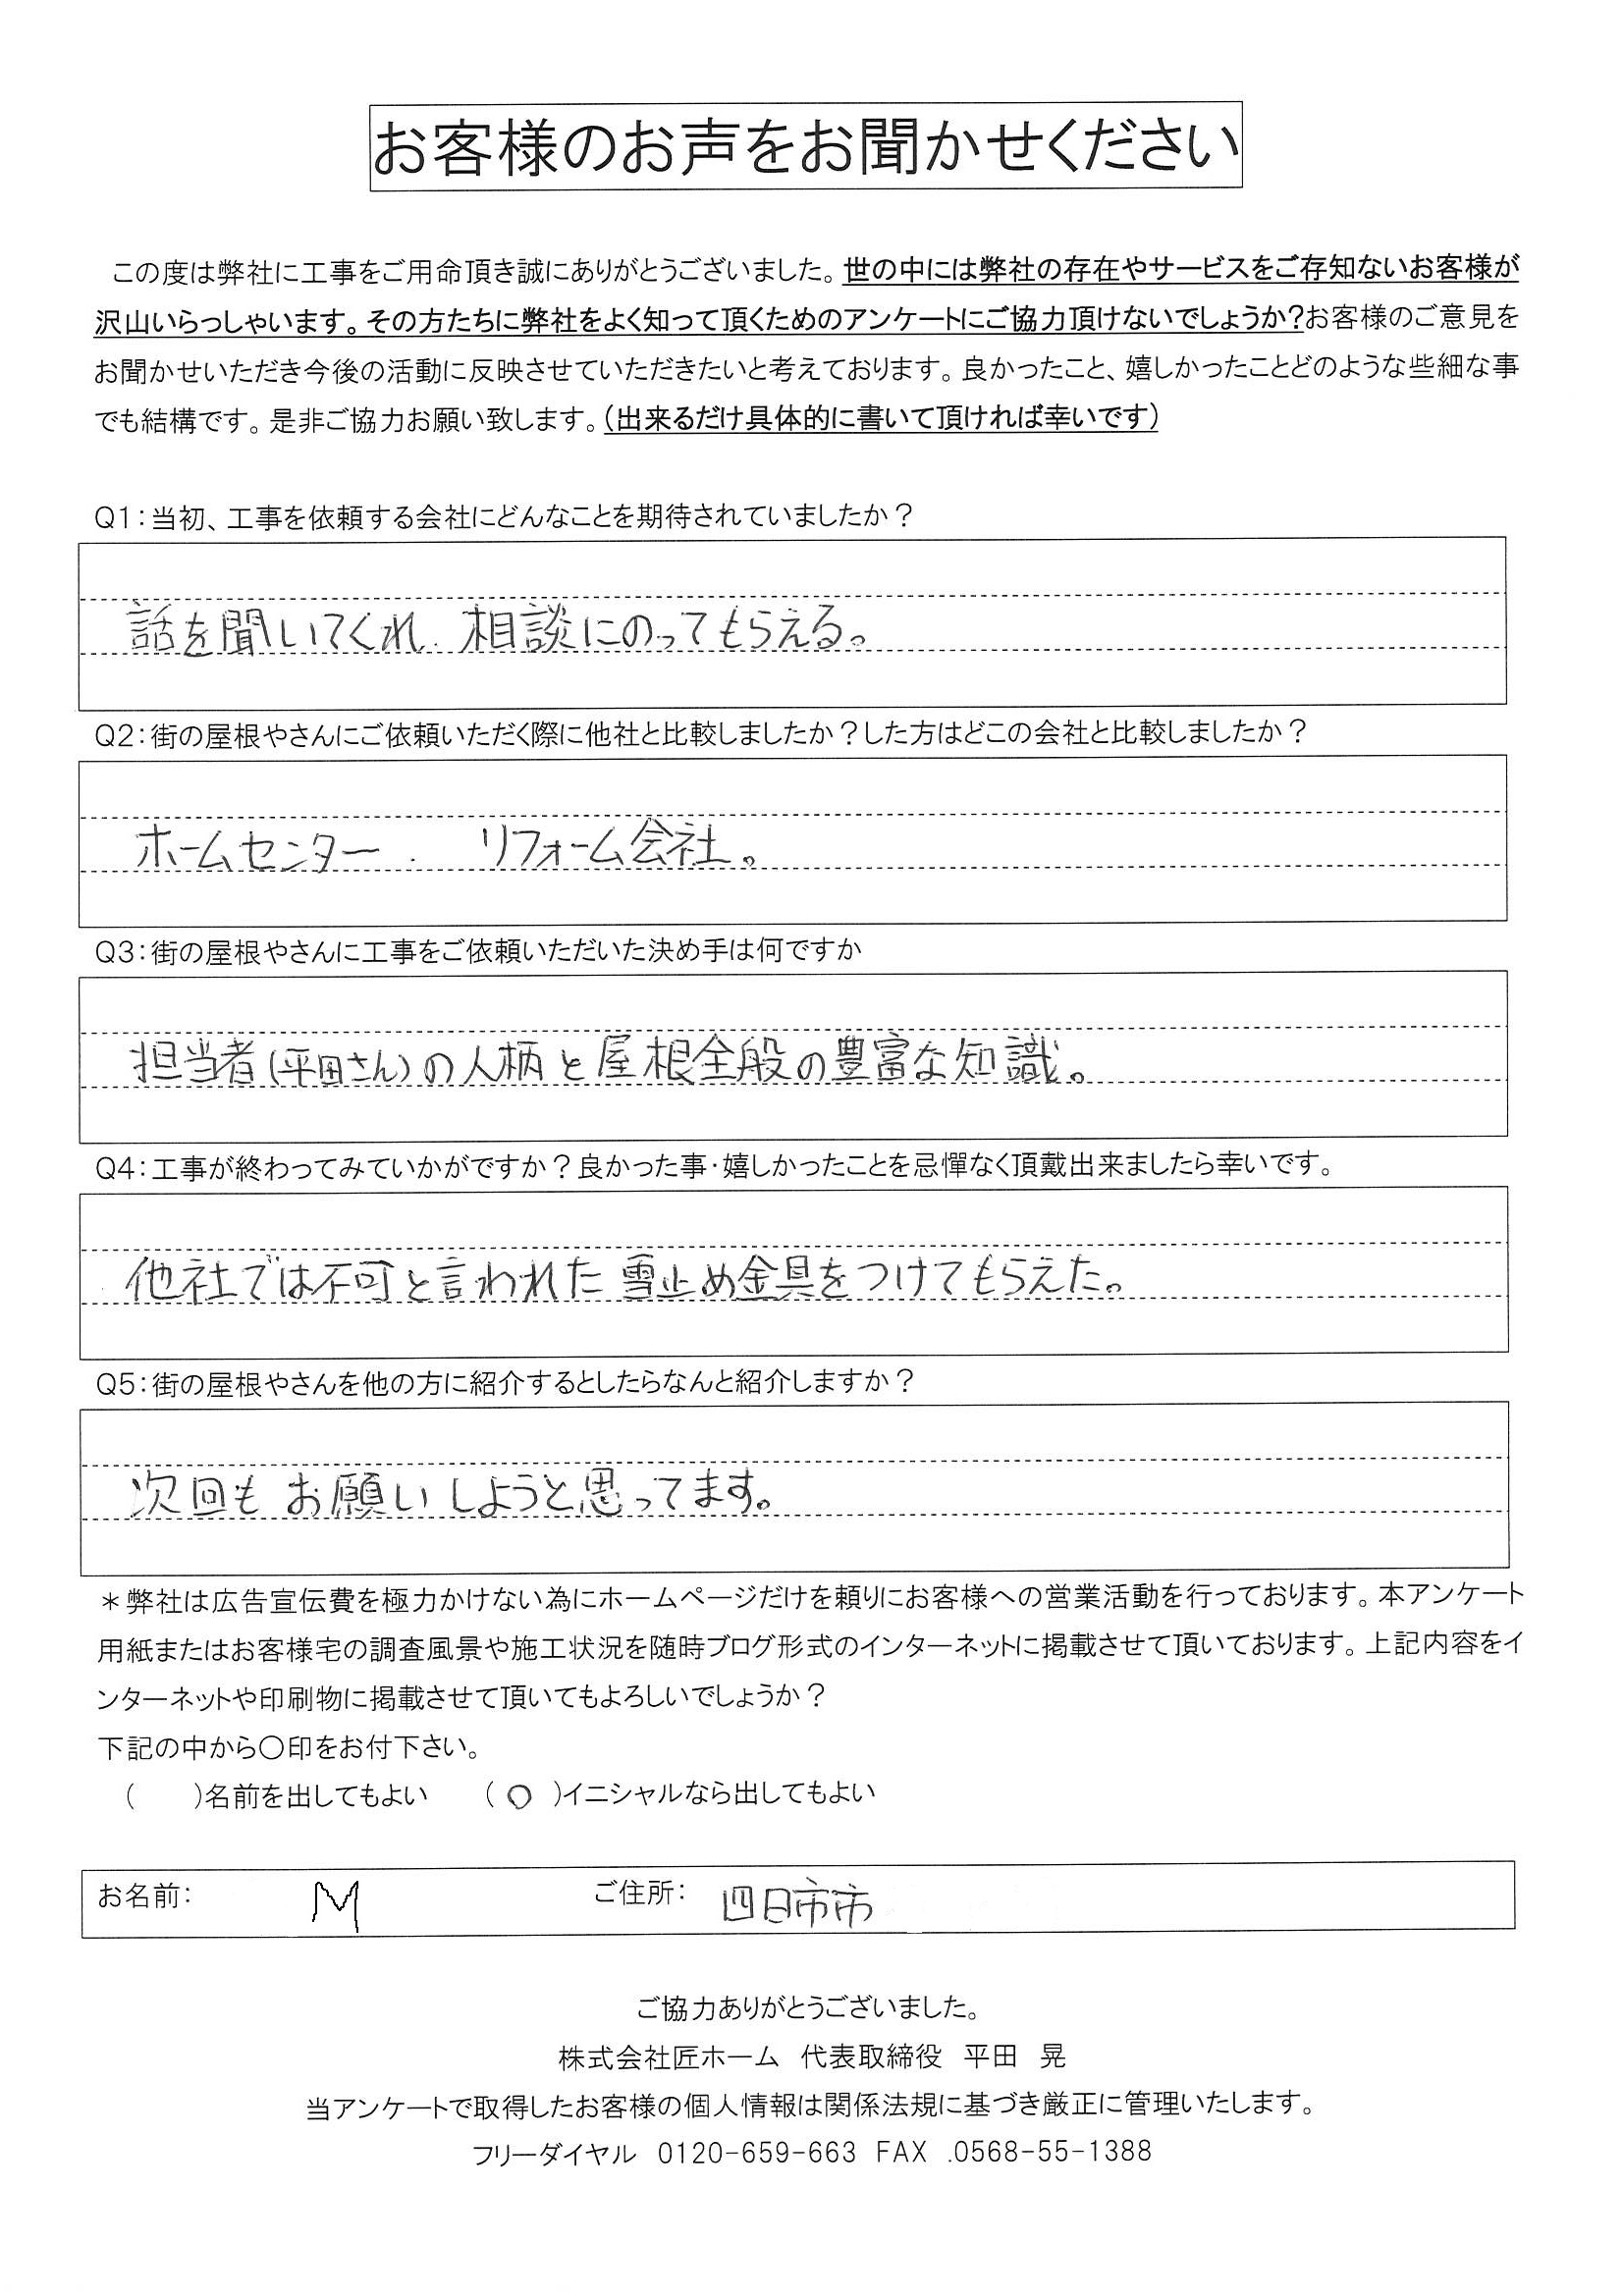 お客様のお声をお聞かせください
この度は弊社に工事をご用命頂き誠にありがとうございました。世の中には弊社の存在やサービスをご存知ないお客様が
沢山いらっしゃいます。その方たちに弊社をよく知って頂くためのアンケートにご協力頂けないでしょうか?お客様のご意見を
お聞かせいただき今後の活動に反映させていただきたいと考えております。良かったこと、嬉しかったことどのような些細な事
でも結構です。是非ご協力お願い致します。(出来るだけ具体的に書いて頂ければ幸いです)
Q1:当初、工事を依頼する会社にどんなことを期待されていましたか?
話を聞いてくれ、相談にのってもらえる。
Q2:街の屋根やさんにご依頼いただく際に他社と比較しましたか?した方はどこの会社と比較しましたか?
ホームセンター、リフォーム会社。
Q3:街の屋根やさんに工事をご依頼いただいた決め手は何ですか
担当者(平田さん)の人柄と屋根全般の豊富な知識。
Q4:工事が終わってみていかがですか?良かった事・嬉しかったことを忌憚なく頂戴出来ましたら幸いです。
他社では不可と言われた雪止め金具をつけてもらえた。
Q5:街の屋根やさんを他の方に紹介するとしたらなんと紹介しますか?
次回もお願いしようと思ってます。
*弊社は広告宣伝費を極力かけない為にホームページだけを頼りにお客様への営業活動を行っております。本アンケート
用紙またはお客様宅の調査風景や施工状況を随時ブログ形式のインターネットに掲載させて頂いております。上記内容をイ
ンターネットや印刷物に掲載させて頂いてもよろしいでしょうか?
下記の中から〇印をお付下さい。
(　　)名前を出してもよい　(〇)イニシャルなら出してもよい
お名前: M　ご住所: 四日市市
ご協力ありがとうございました。
株式会社匠ホーム 代表取締役 平田 晃
当アンケートで取得したお客様の個人情報は関係法規に基づき厳正に管理いたします。
フリーダイヤル 0120-659-663 FAX .0568-55-1388